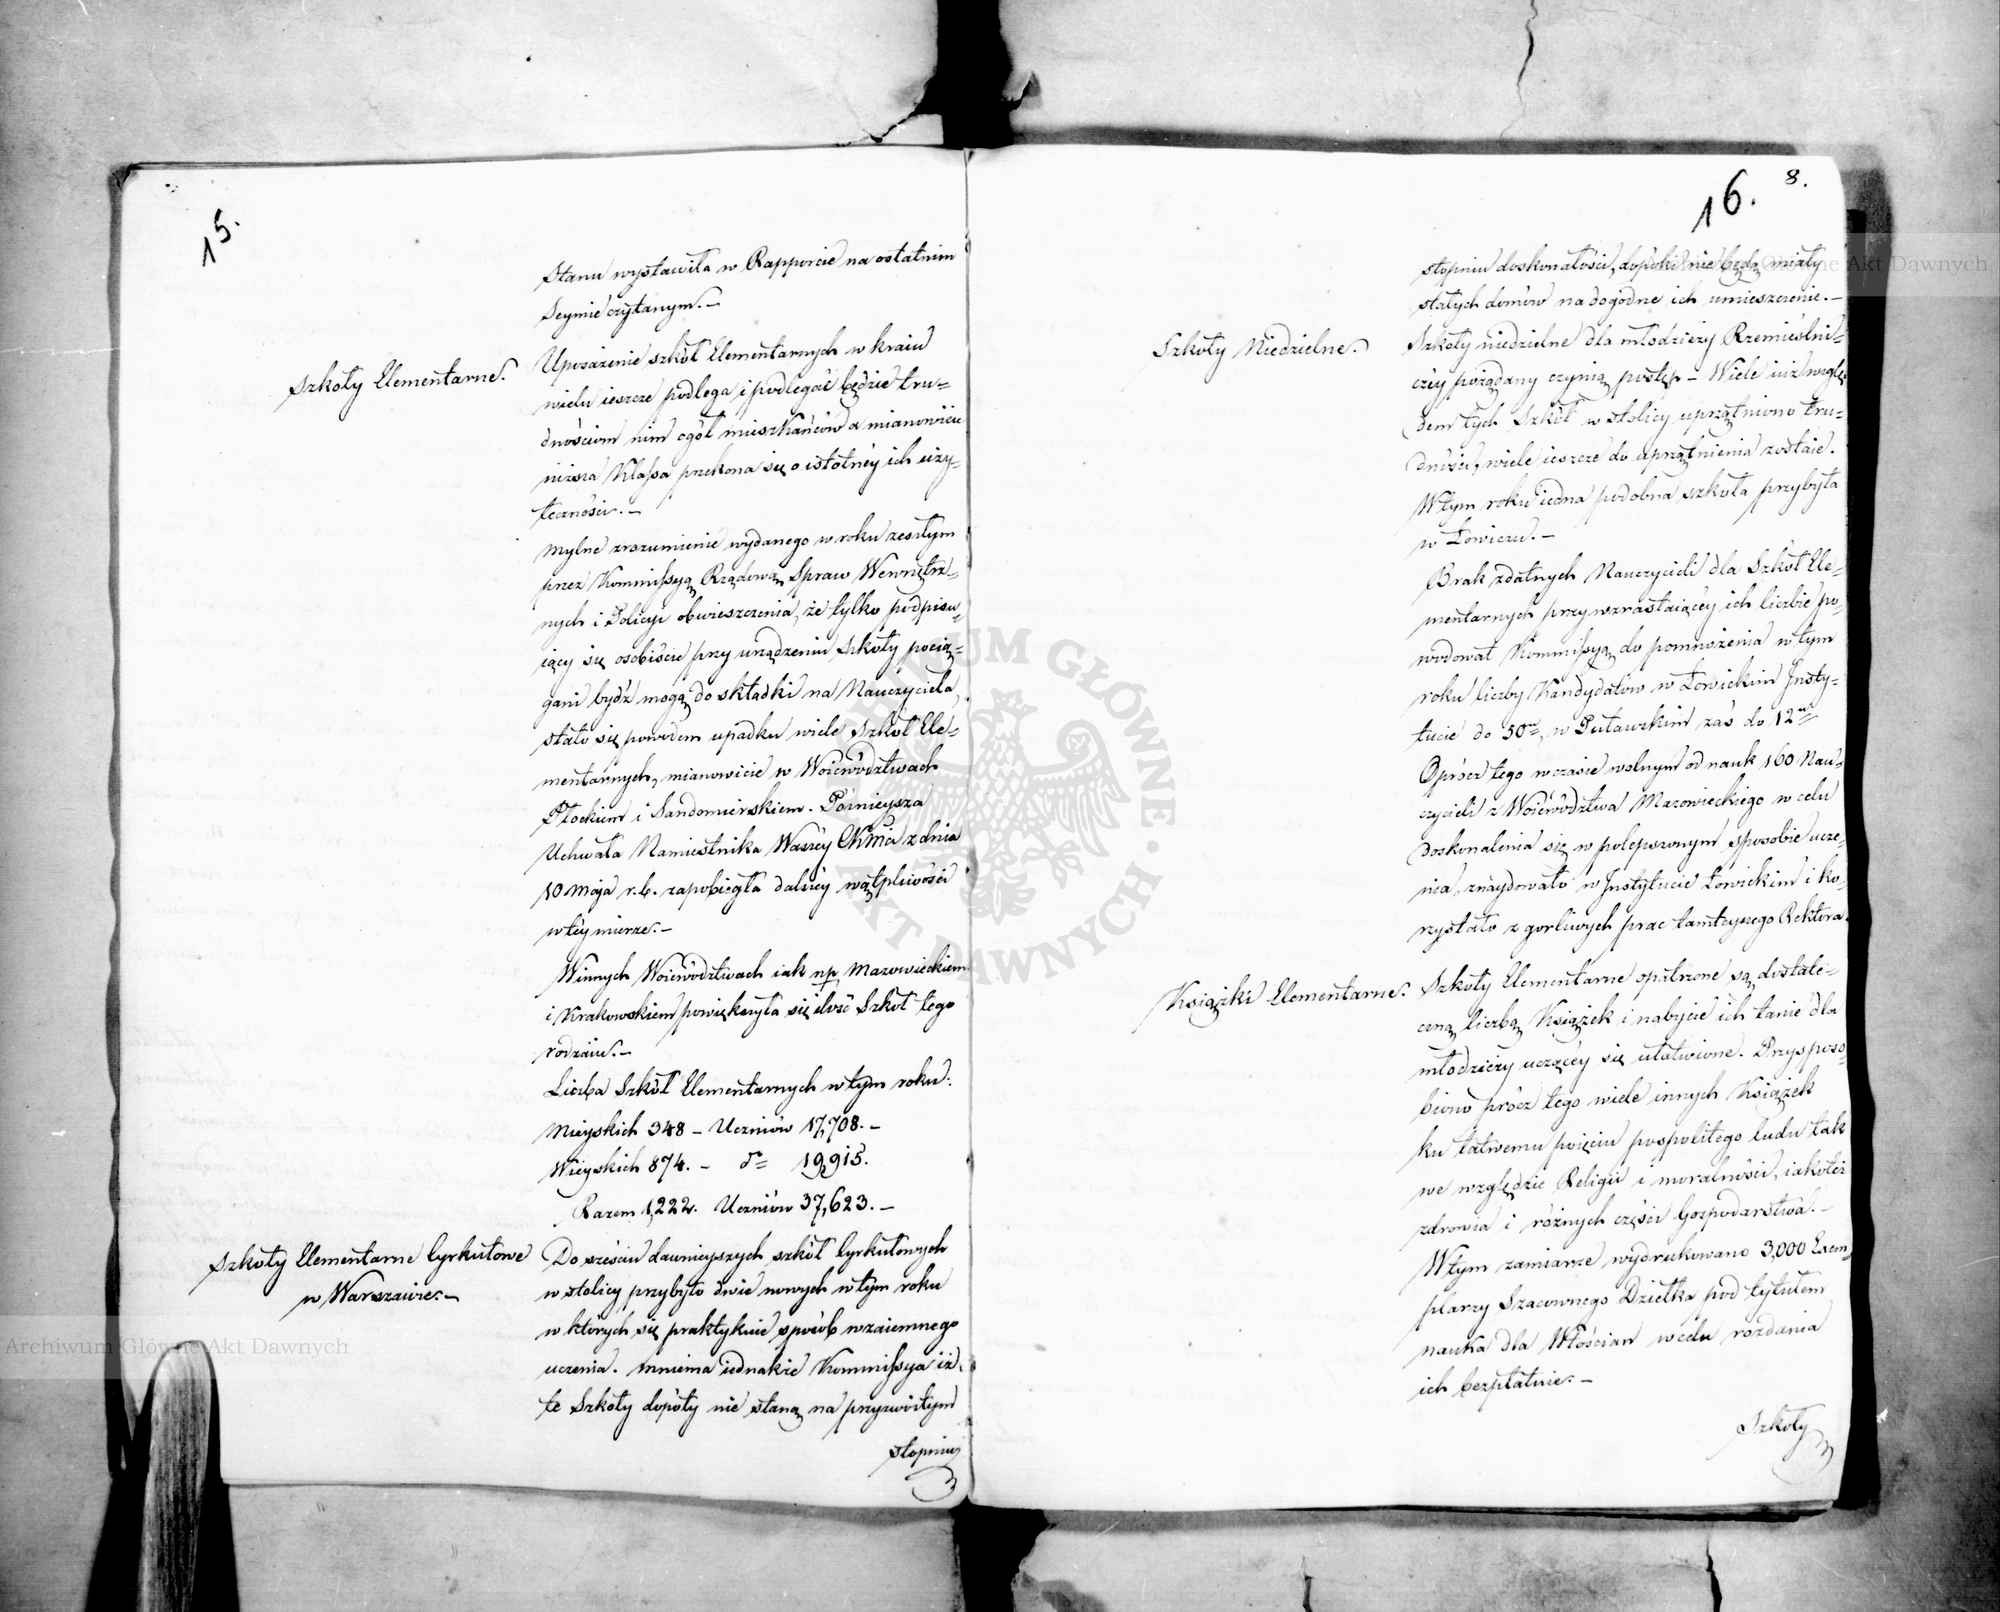 15.
Stanu wystawiła w Rapporcie na ostatnim
Seymie czytanym. –
Szkoły Elementarne.
Uposażenie szkół Elementarnych w kraiu
wielu ieszcze podlega i podlegać będzie tru-
dnościom nim ogół mieszkańców a mianowicie
niższa Klassa przekona się o istotnéy ich uży-
teczności. –
Mylne zrozumienie wydanego w roku zeszłym
przez Kommissyą Rządową Spraw Wewnętrz-
nych i Policyi obwieszczenia, że tylko podpisu-
iący się osobiście przy urządzeniu Szkoły pocią-
gani bydź mogą do składki na Nauczyciela,
stało się powodem upadku wiele Szkół Ele-
mentarnych, mianowicie w Woiewództwach
Płockiem i Sandomierskiem. Póznieysza
Uchwała Namiestnika Waszéy CKMci z dnia
10 Maja r. b. zapobiegła dalszéy wątpliwości
w téy mierze. –
W innych Woiewództwach iak np Mazowieckiem
i Krakowskiem powiększyła się ilość Szkół tego
rodzaiu. –
Liczba Szkół Elementarnych w tym roku:
Mieyskich 348 – Uczniów 17,708. –
Wieyskich 874. – do 19,915.
Razem 1,222. Uczniów 37,623. –
Szkoły Elementarne Cyrkułowe
w Warszawie. –
Do sześciu dawnieyszych szkół Cyrkułowych
w stolicy przybyło dwie nowych w tym roku
w których się praktykuie sposób wzaiemnego
uczenia. Mniema iednakże Kommissya iż
te Szkoły dopóty nie staną na przyzwoitym
stopniu
16. 8.
stopniu doskonałości, dopóki nie będą miały
stałych domów na dogodne ich umieszczenie. –
Szkoły Niedzielne.
Szkoły niedzielne dla młodzieży Rzemieślni-
czéy pożądany czynią postęp – Wiele iuż wzglę
dem tych Szkół w stolicy uprzątniono tru-
dności, wiele ieszcze do uprzątnienia zostaie.
W tym roku iedna podobna szkoła przybyła
w Łowiczu. –
Brak zdatnych Nauczycieli dla Szkół Ele-
mentarnych przy wzrastaiącéy ich liczbie po-
wodował Kommissyą do pomnożenia w tym
roku liczby Kandydatów w Łowickim Insty-
tucie do 50u, w Puławskim zaś do 12u
Oprócz tego w czasie wolnym od nauk 160 Nau-
czycieli z Woiewództwa Mazowieckiego w celu
doskonalenia się w polepszonym sposobie ucze-
nia, znaydowało w Instytucie Łowickim i ko-
rzystało z gorliwych prac tamteyszego Rektora
Książki Elementarne.
Szkoły Elementarne opatrzone są dostate-
czną liczbą Książek i nabycie ich tanie dla
młodzieży uczącéy się ułatwione. Przysposo-
biono prócz tego wiele innych Książek
ku łatwemu poięciu pospolitego ludu tak
we względzie Religii i moralności, iakoteż
zdrowia i różnych części Gospodarstwa. –
W tym zamiarze wydrukowano 3,000 Exem-
plarzy Szacownego Dziełka pod tytułem
nauka dla Włościan w celu rozdania
ich bezpłatnie. –
Szkoły
Archiwum Główne Akt Dawnych
Archiwum Główne Akt Dawnych
ARCHIWUM GŁÓWNE AKT DAWNYCH